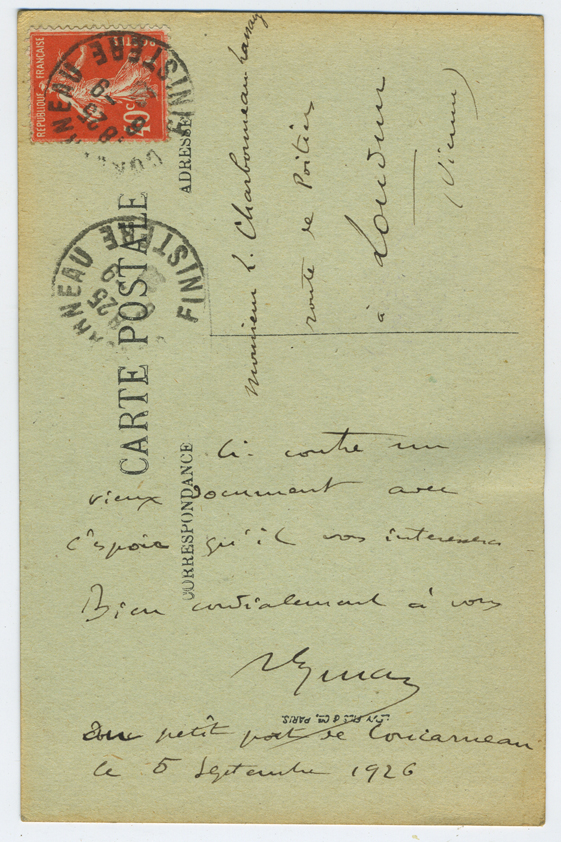 RÉPUBLIQUE FRANÇAISE
40c
FINISTERE
25
9
ANNEAU FINISTERE
25
9
CARTE POSTALE
ADRESSE
CORRESPONDANCE
Monsieur L. Charbonneau-Lassay
route de Poitiers
à Loudun
(Vienne)
Ci-contre un
vieux document avec
l'espoir qu'il vos interessera
Bien cordialement à vous
PARIS.
petit port de Concarneau
le 5 Septembre 1926